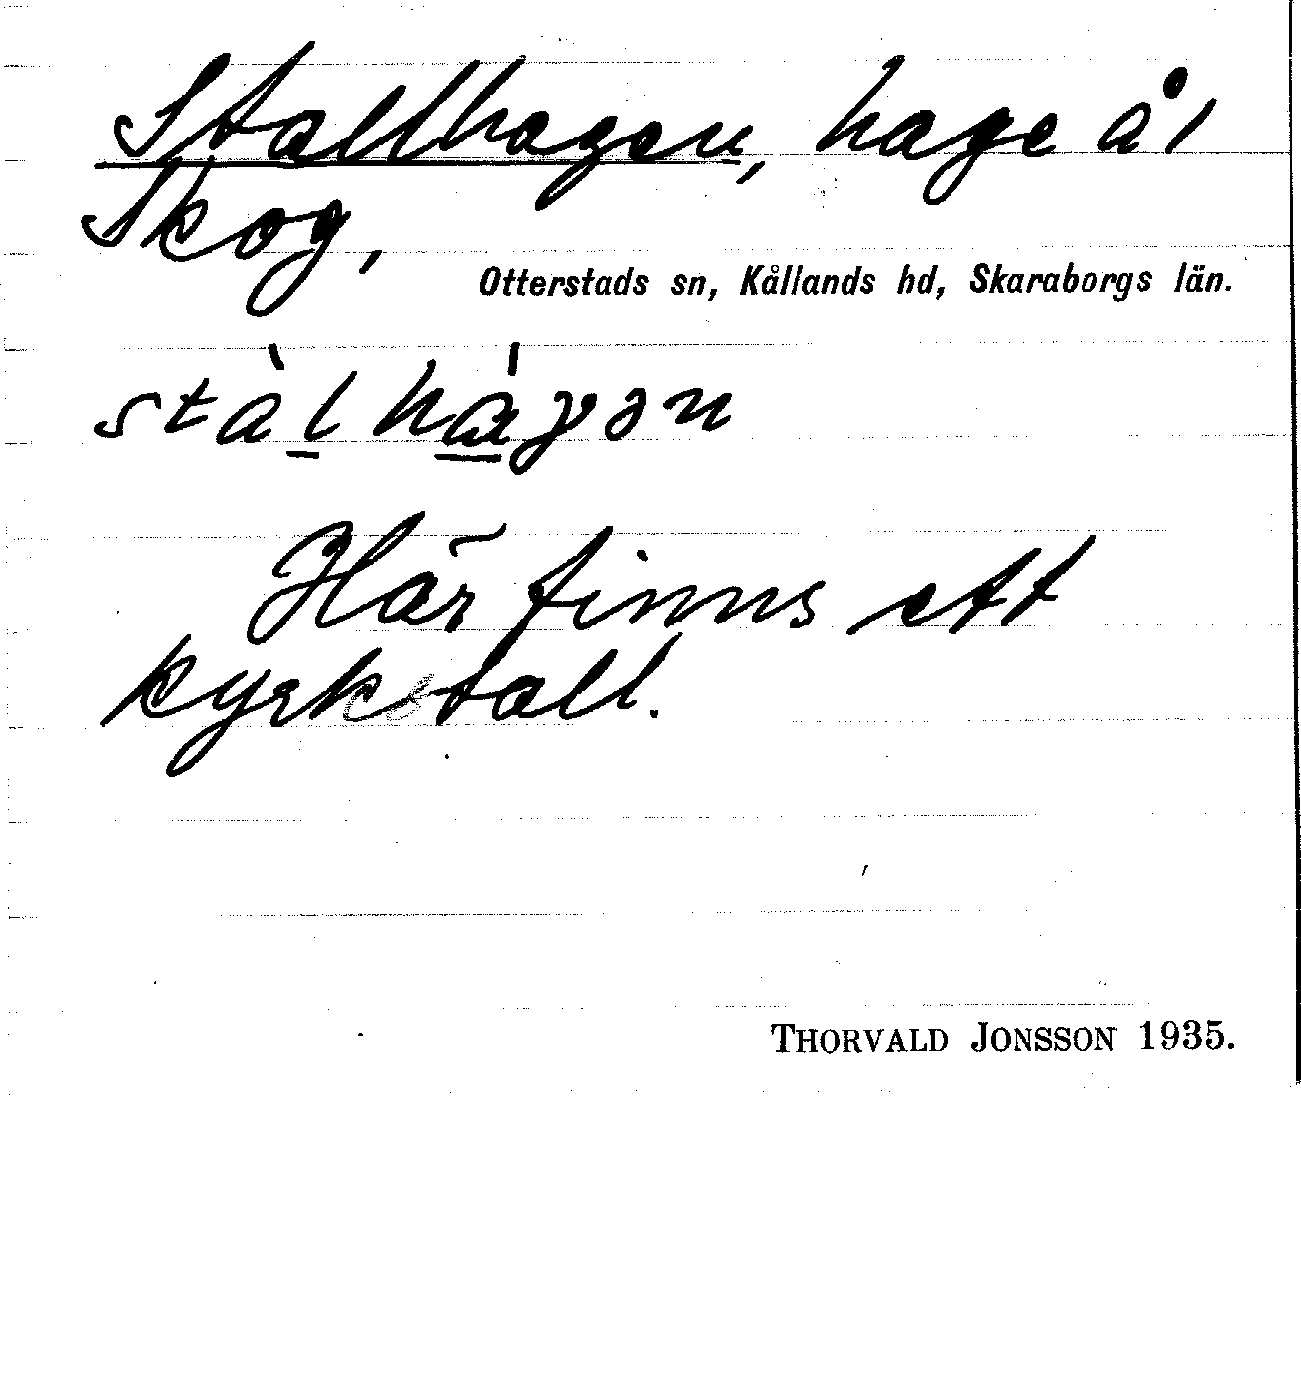 Stallhagen, hage å l
Skog,
Otterstads sn, Kållands hd, Skaraborgs län.
stàl háɣən
Här finns ett
kyrkstall.
THORVALD JONSSON 1935.